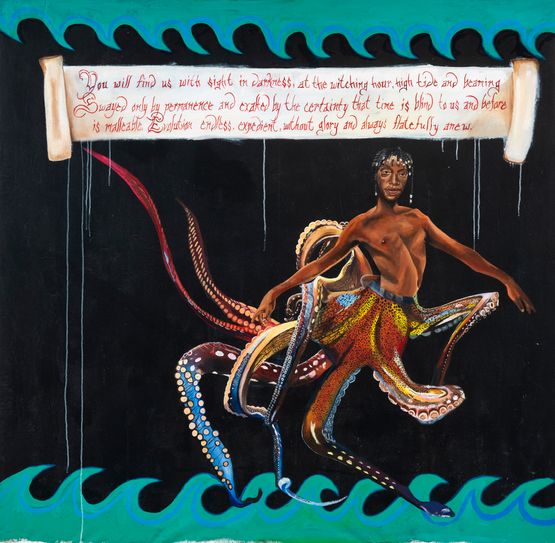 You will find us with sight in darkness, at the witching hour, high tide and beaming
Swayed only by permanence and exalted by the certainty that time is blind to us and before
is malleable. Evolution endless, expedient, without glory and always fatefully anew.